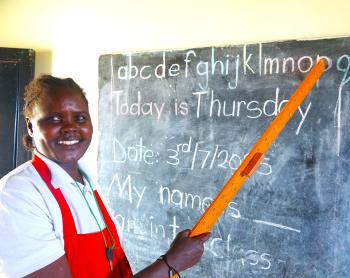 abcdefghijklmnopq
Today is Thursday
Date: 3rd/7/2025
My name is
class